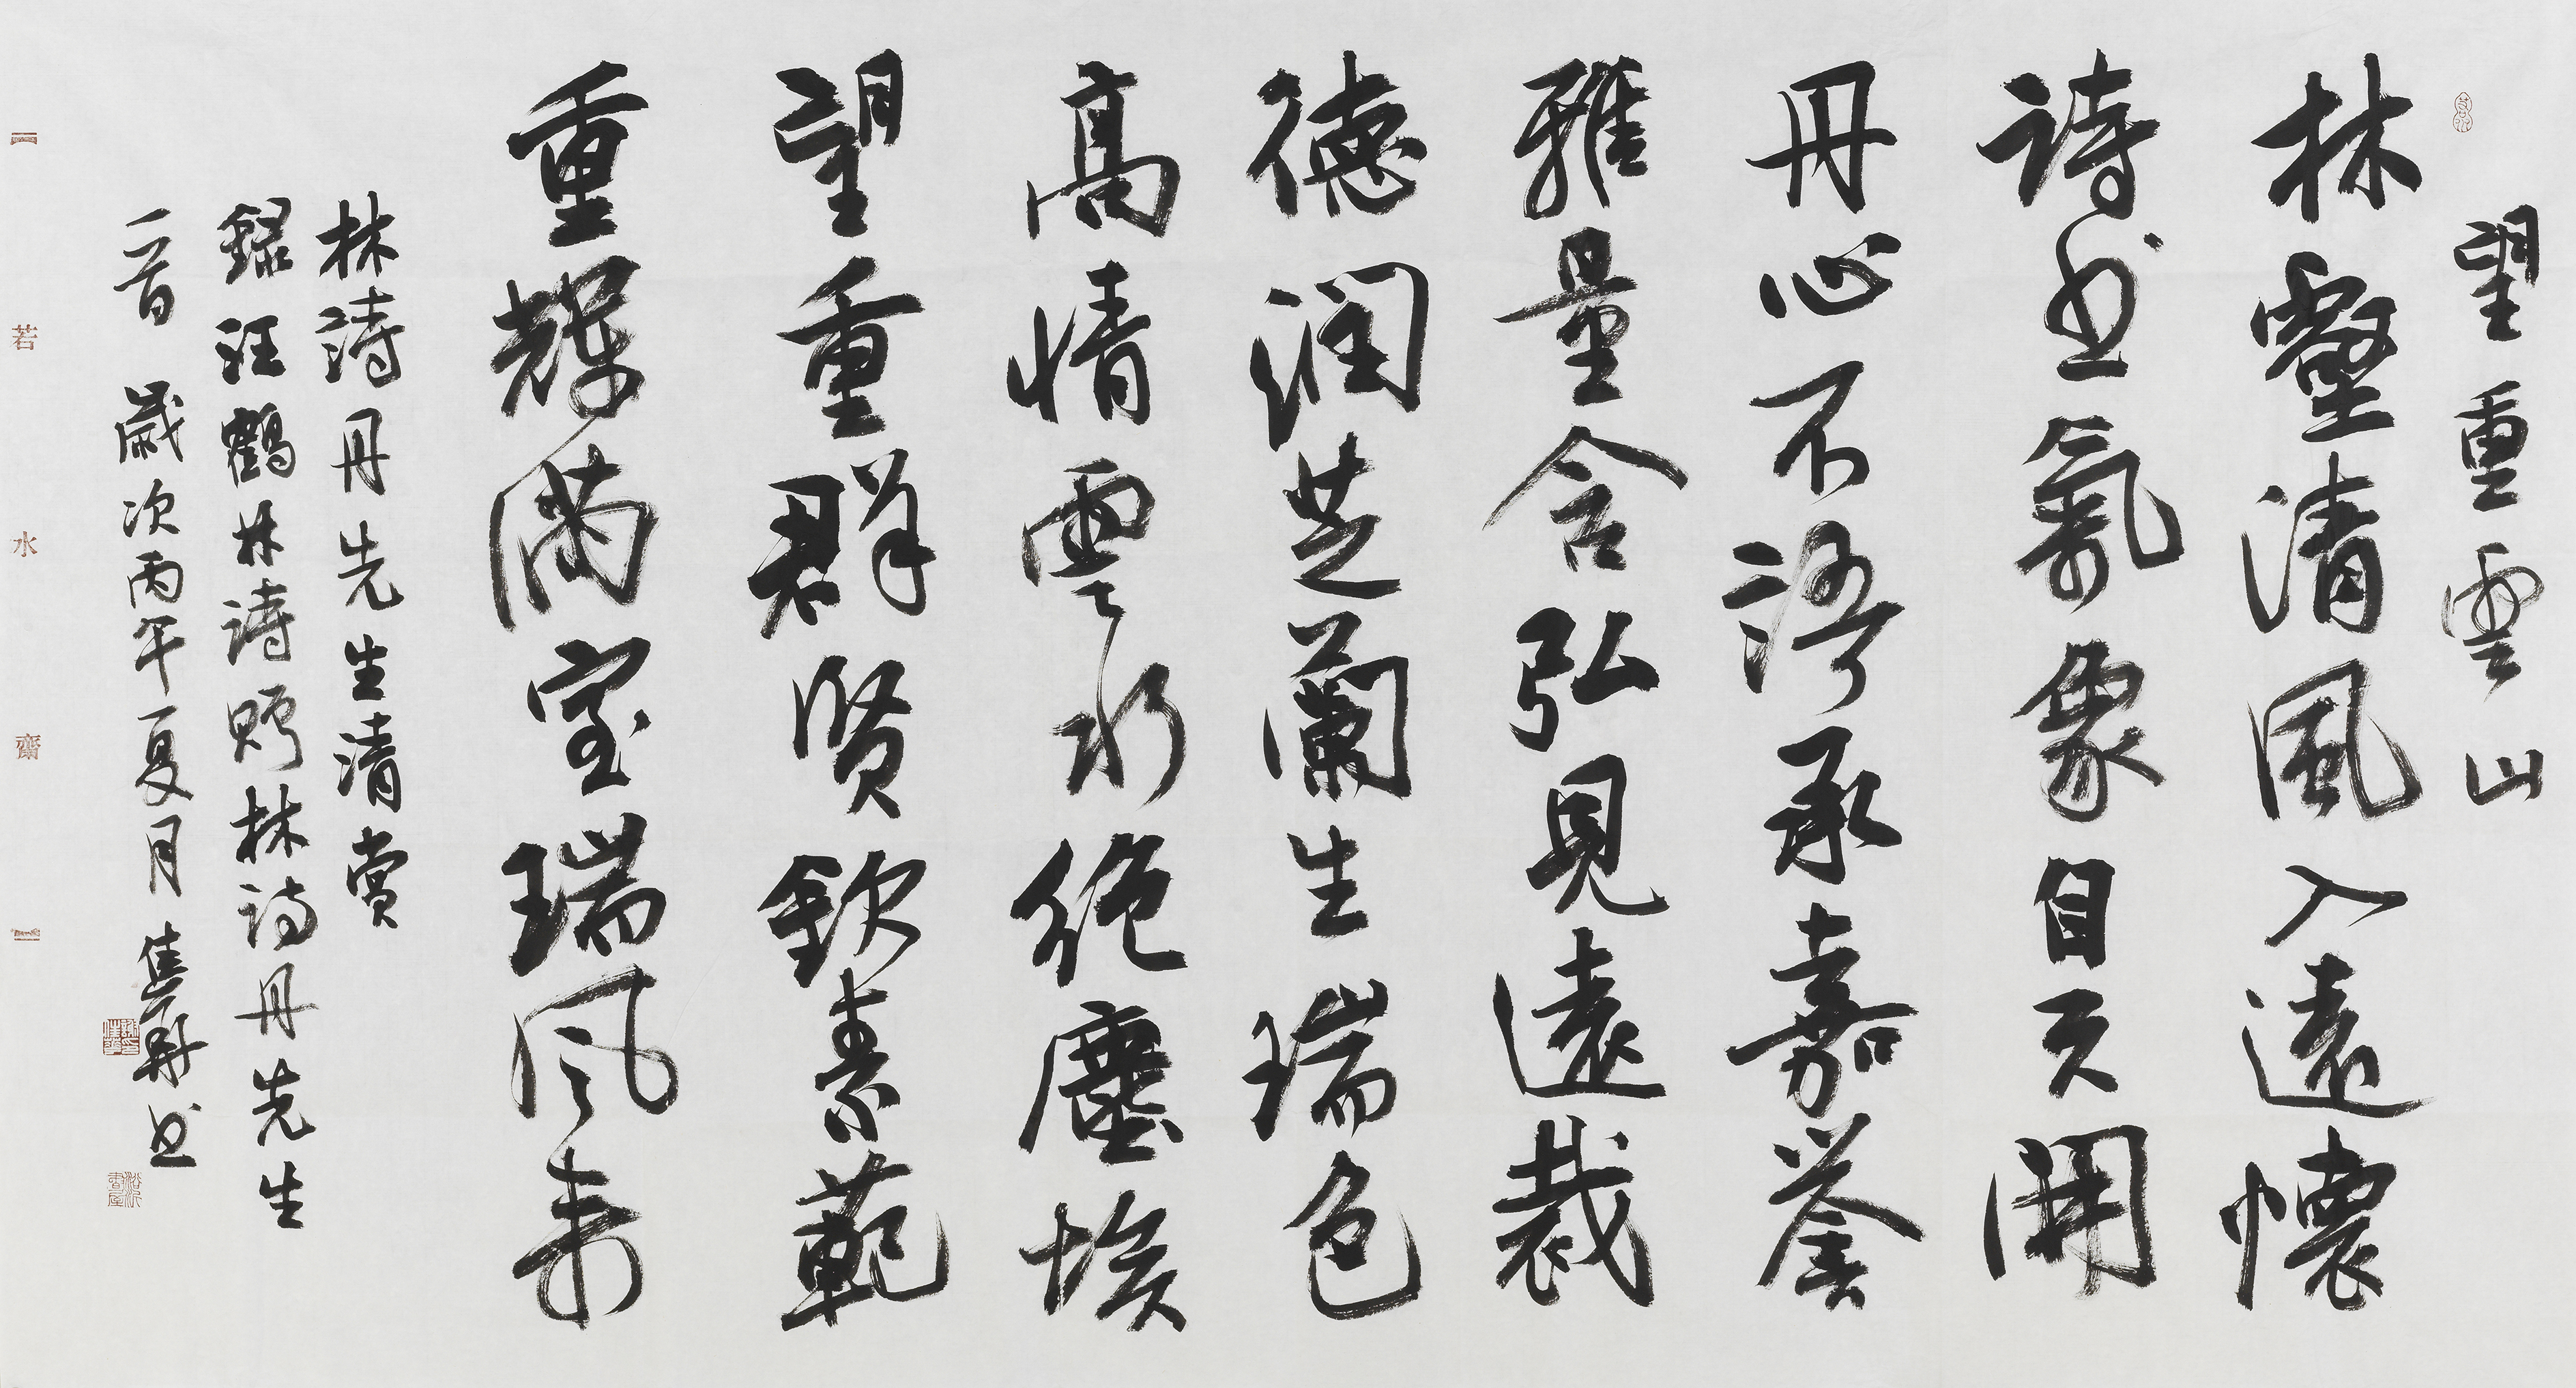 望重雲山
林壑清風入遠懷
詩書氣象自天開
丹心不語承嘉譽
雅量含弘見遠裁
德潤芝蘭生瑞色
高情雲水絕塵埃
望重群賢欽素範
重輝滿室瑞風來
林詩丹先生清賞
錄汪鶴林詩贈林詩丹先生
一首 歲次丙午夏月 書
若水齋